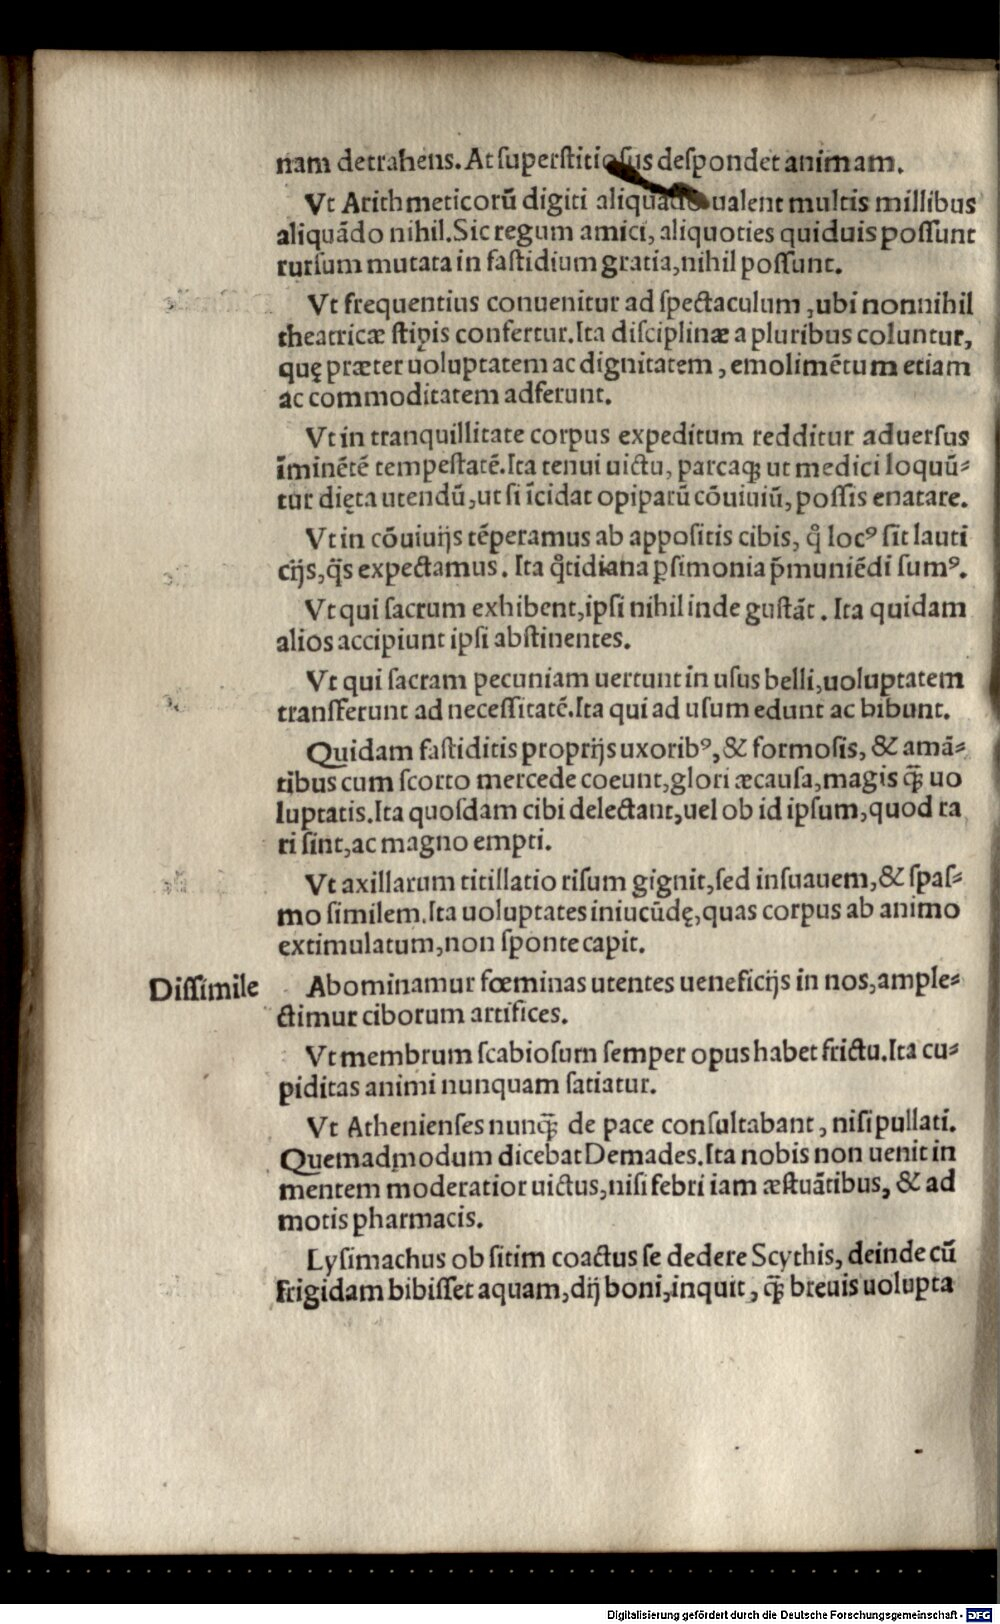 nam detrahens. At superstitiosus despondet animam.
Vt Arithmeticorū digiti aliquādo ualent multis millibus
aliquādo nihil. Sic regum amici, aliquoties quiduis possunt
rursum mutata in fastidium gratia, nihil possunt.
Vt frequentius conuenitur ad spectaculum, ubi nonnihil
theatricæ stipis confertur. Ita disciplinæ a pluribus coluntur,
quę præter uoluptatem ac dignitatem, emolimētum etiam
ac commoditatem adferunt.
Vt in tranquillitate corpus expeditum redditur aduersus
īminētē tempestatē. Ita tenui uictu, parcaqꝫ ut medici loquū⸗
tur dięta utendū, ut si īcidat opiparū cōuiuiū, possis enatare.
Vt in cōuiuijs tēperamus ab appositis cibis, q̊ locꝰ sit lauti
cijs, q̄s expectamus. Ita q̊tidiana ꝑsimonia p̄muniēdi sumꝰ.
Vt qui sacrum exhibent, ipsi nihil inde gustāt. Ita quidam
alios accipiunt ipsi abstinentes.
Vt qui sacram pecuniam uertunt in usus belli, uoluptatem
transferunt ad necessitatē. Ita qui ad usum edunt ac bibunt.
Quidam fastiditis proprijs uxoribꝰ, & formosis, & amā⸗
tibus cum scorto mercede coeunt, glori æcausa, magis q̄ꝫ uo
luptatis. Ita quosdam cibi delectant, uel ob id ipsum, quod ra
ri sint, ac magno empti.
Vt axillarum titillatio risum gignit, sed insuauem, & spas⸗
mo similem. Ita uoluptates iniucūdę, quas corpus ab animo
extimulatum, non sponte capit.
Dissimile Abominamur fœminas utentes ueneficijs in nos, ample⸗
ctimur ciborum artifices.
Vt membrum scabiosum semper opus habet frictu. Ita cu⸗
piditas animi nunquam satiatur.
Vt Athenienses nunq̄ꝫ de pace consultabant, nisi pullati.
Quemadmodum dicebat Demades. Ita nobis non uenit in
mentem moderatior uictus, nisi febri iam æstuātibus, & ad
motis pharmacis.
Lysimachus ob sitim coactus se dedere Scythis, deinde cū
frigidam bibisset aquam, dij boni, inquit, q̄ꝫ breuis uolupta
Digitalisierung gefördert durch die Deutsche Forschungsgemeinschaft - DFG